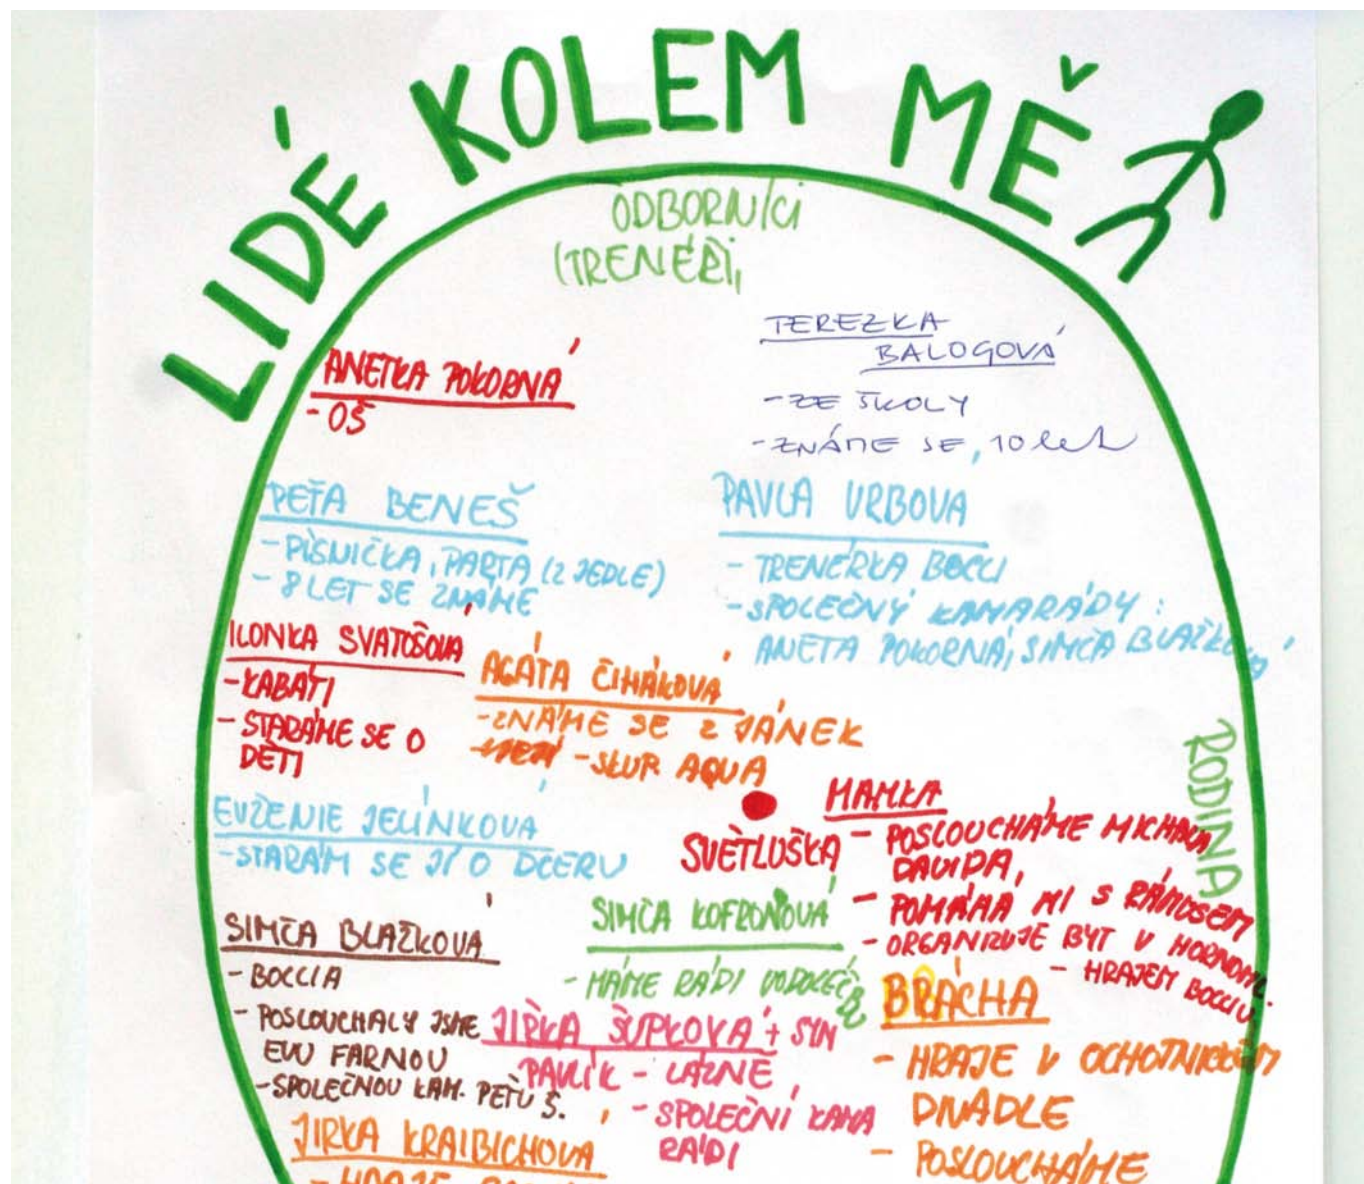 LIDÉ KOLEM MĚ
ODBORNÍCI
(TRENÉŘI,
TEREZKA
BALOGOVÁ
- ZE ŠKOLY
- ZNÁME SE, 10 let
ANETKA POKORNÁ
- OŠ
PEŤA BENEŠ
- PÍSNIČKA, PARTA (Z JEDLE)
- 8 LET SE ZNÁME
PAVLA VRBOVA
- TRENÉRKA BOCCI
- SPOLEČNÝ KAMARÁDY:
ANETA POKORNÁ, SIMČA BLAŽKOVÁ
ILONKA SVATOŠOVÁ
- KABÁTI
- STARÁME SE O
DĚTI
AGÁTA ČIHÁKOVÁ
- ZNÁME SE Z JÁNEK
- SKUP. AQUA
RODINA
EVŽENIE JELÍNKOVÁ
- STARÁM SE JÍ O DCERU
SVĚTLUŠKA
MAMKA
- POSLOUCHÁME MICHALA
DAVIDA,
- POMÁHÁ MI S RÁMUSEM
- ORGANIZUJE BYT V HORNOML.
- HRAJEM BOCCIU
SIMČA BLAŽKOVÁ
- BOCCIA
- POSLOUCHALY JSME
EVU FARNOU
- SPOLEČNOU KAM. PEŤU Š.
SIMČA KOFROŇOVÁ
- MÁME RÁDI
JIŘKA ŠUPKOVÁ + SYN
PAVLÍK - LÁZNĚ
- SPOLEČNÍ KAMA
RÁDI
BRÁCHA
- HRAJE V OCHOTNICKÉM
DIVADLE
- POSLOUCHÁME
JIRKA KRAIBICHOVÁ
- HRAJE